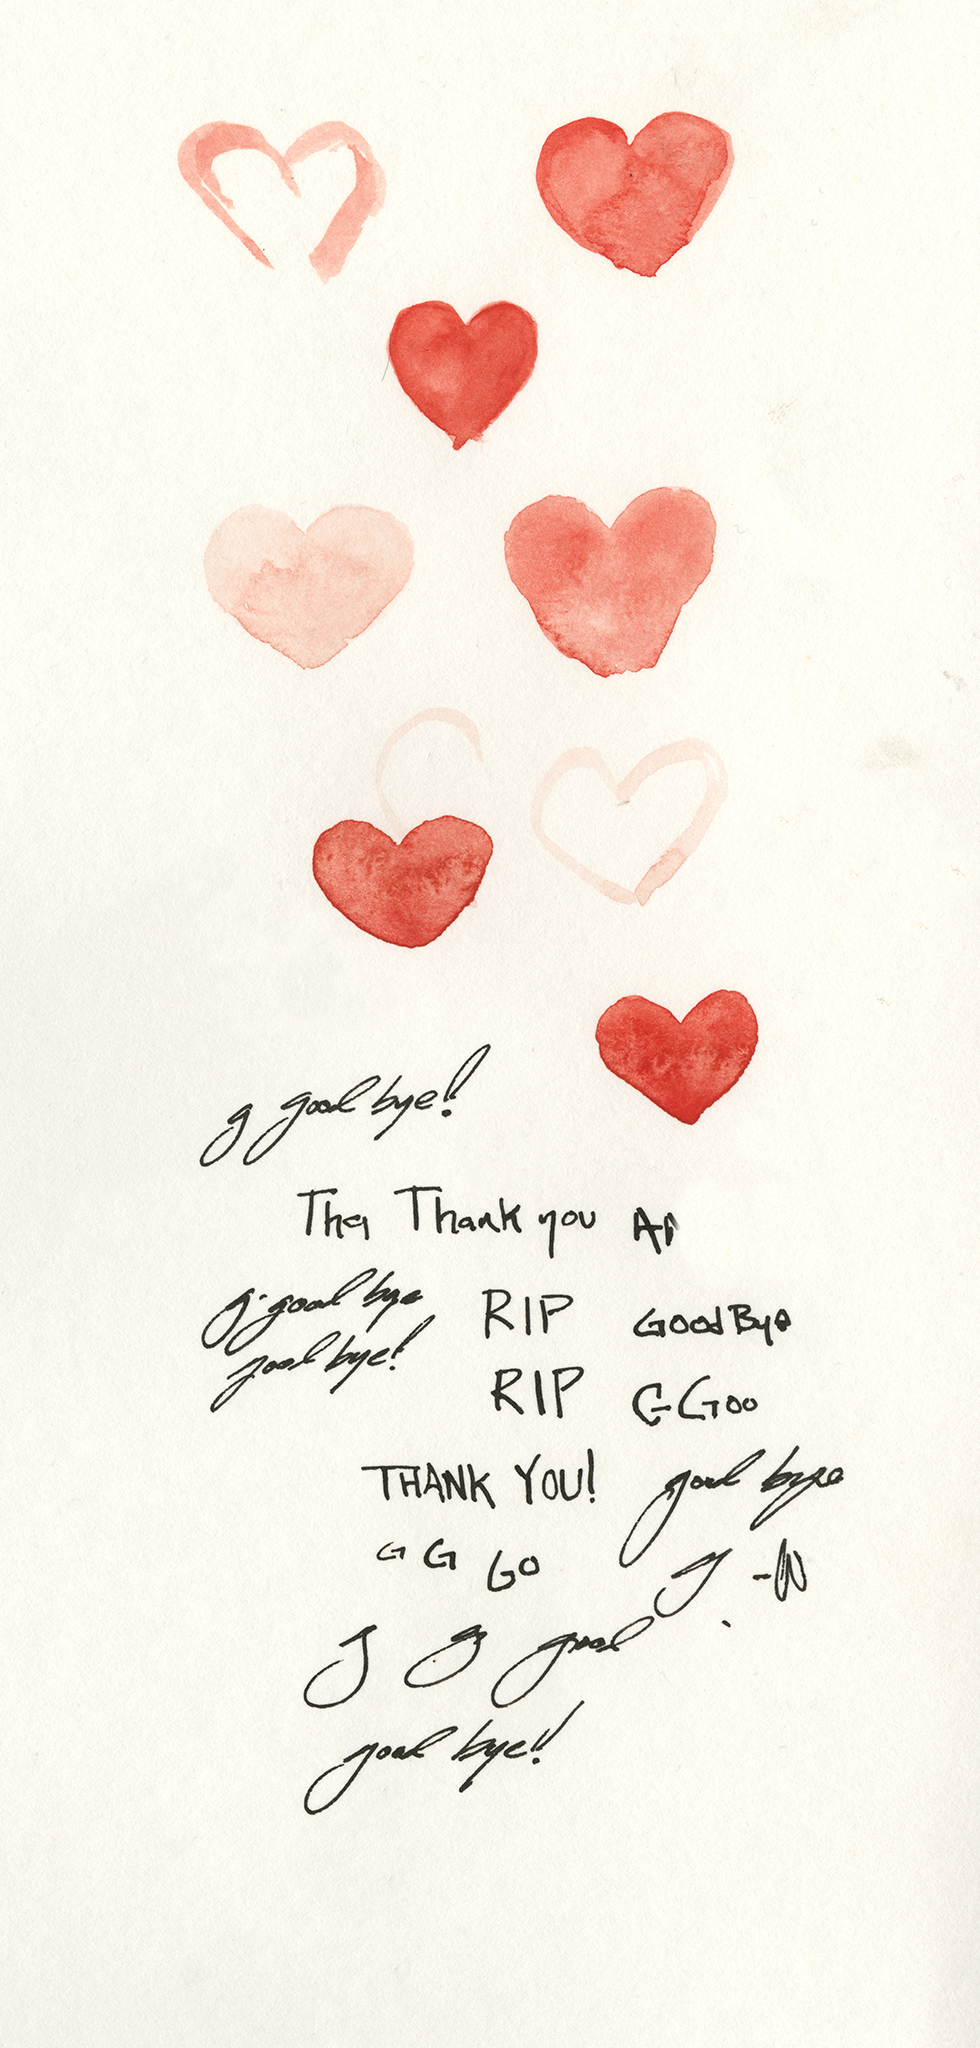 g good bye!!
Tha Thank you
g good bye
RIP
GoodBye
good bye!
RIP
G Goo
THANK YOU!
good bye
G G GO
g
g g good
good bye!!